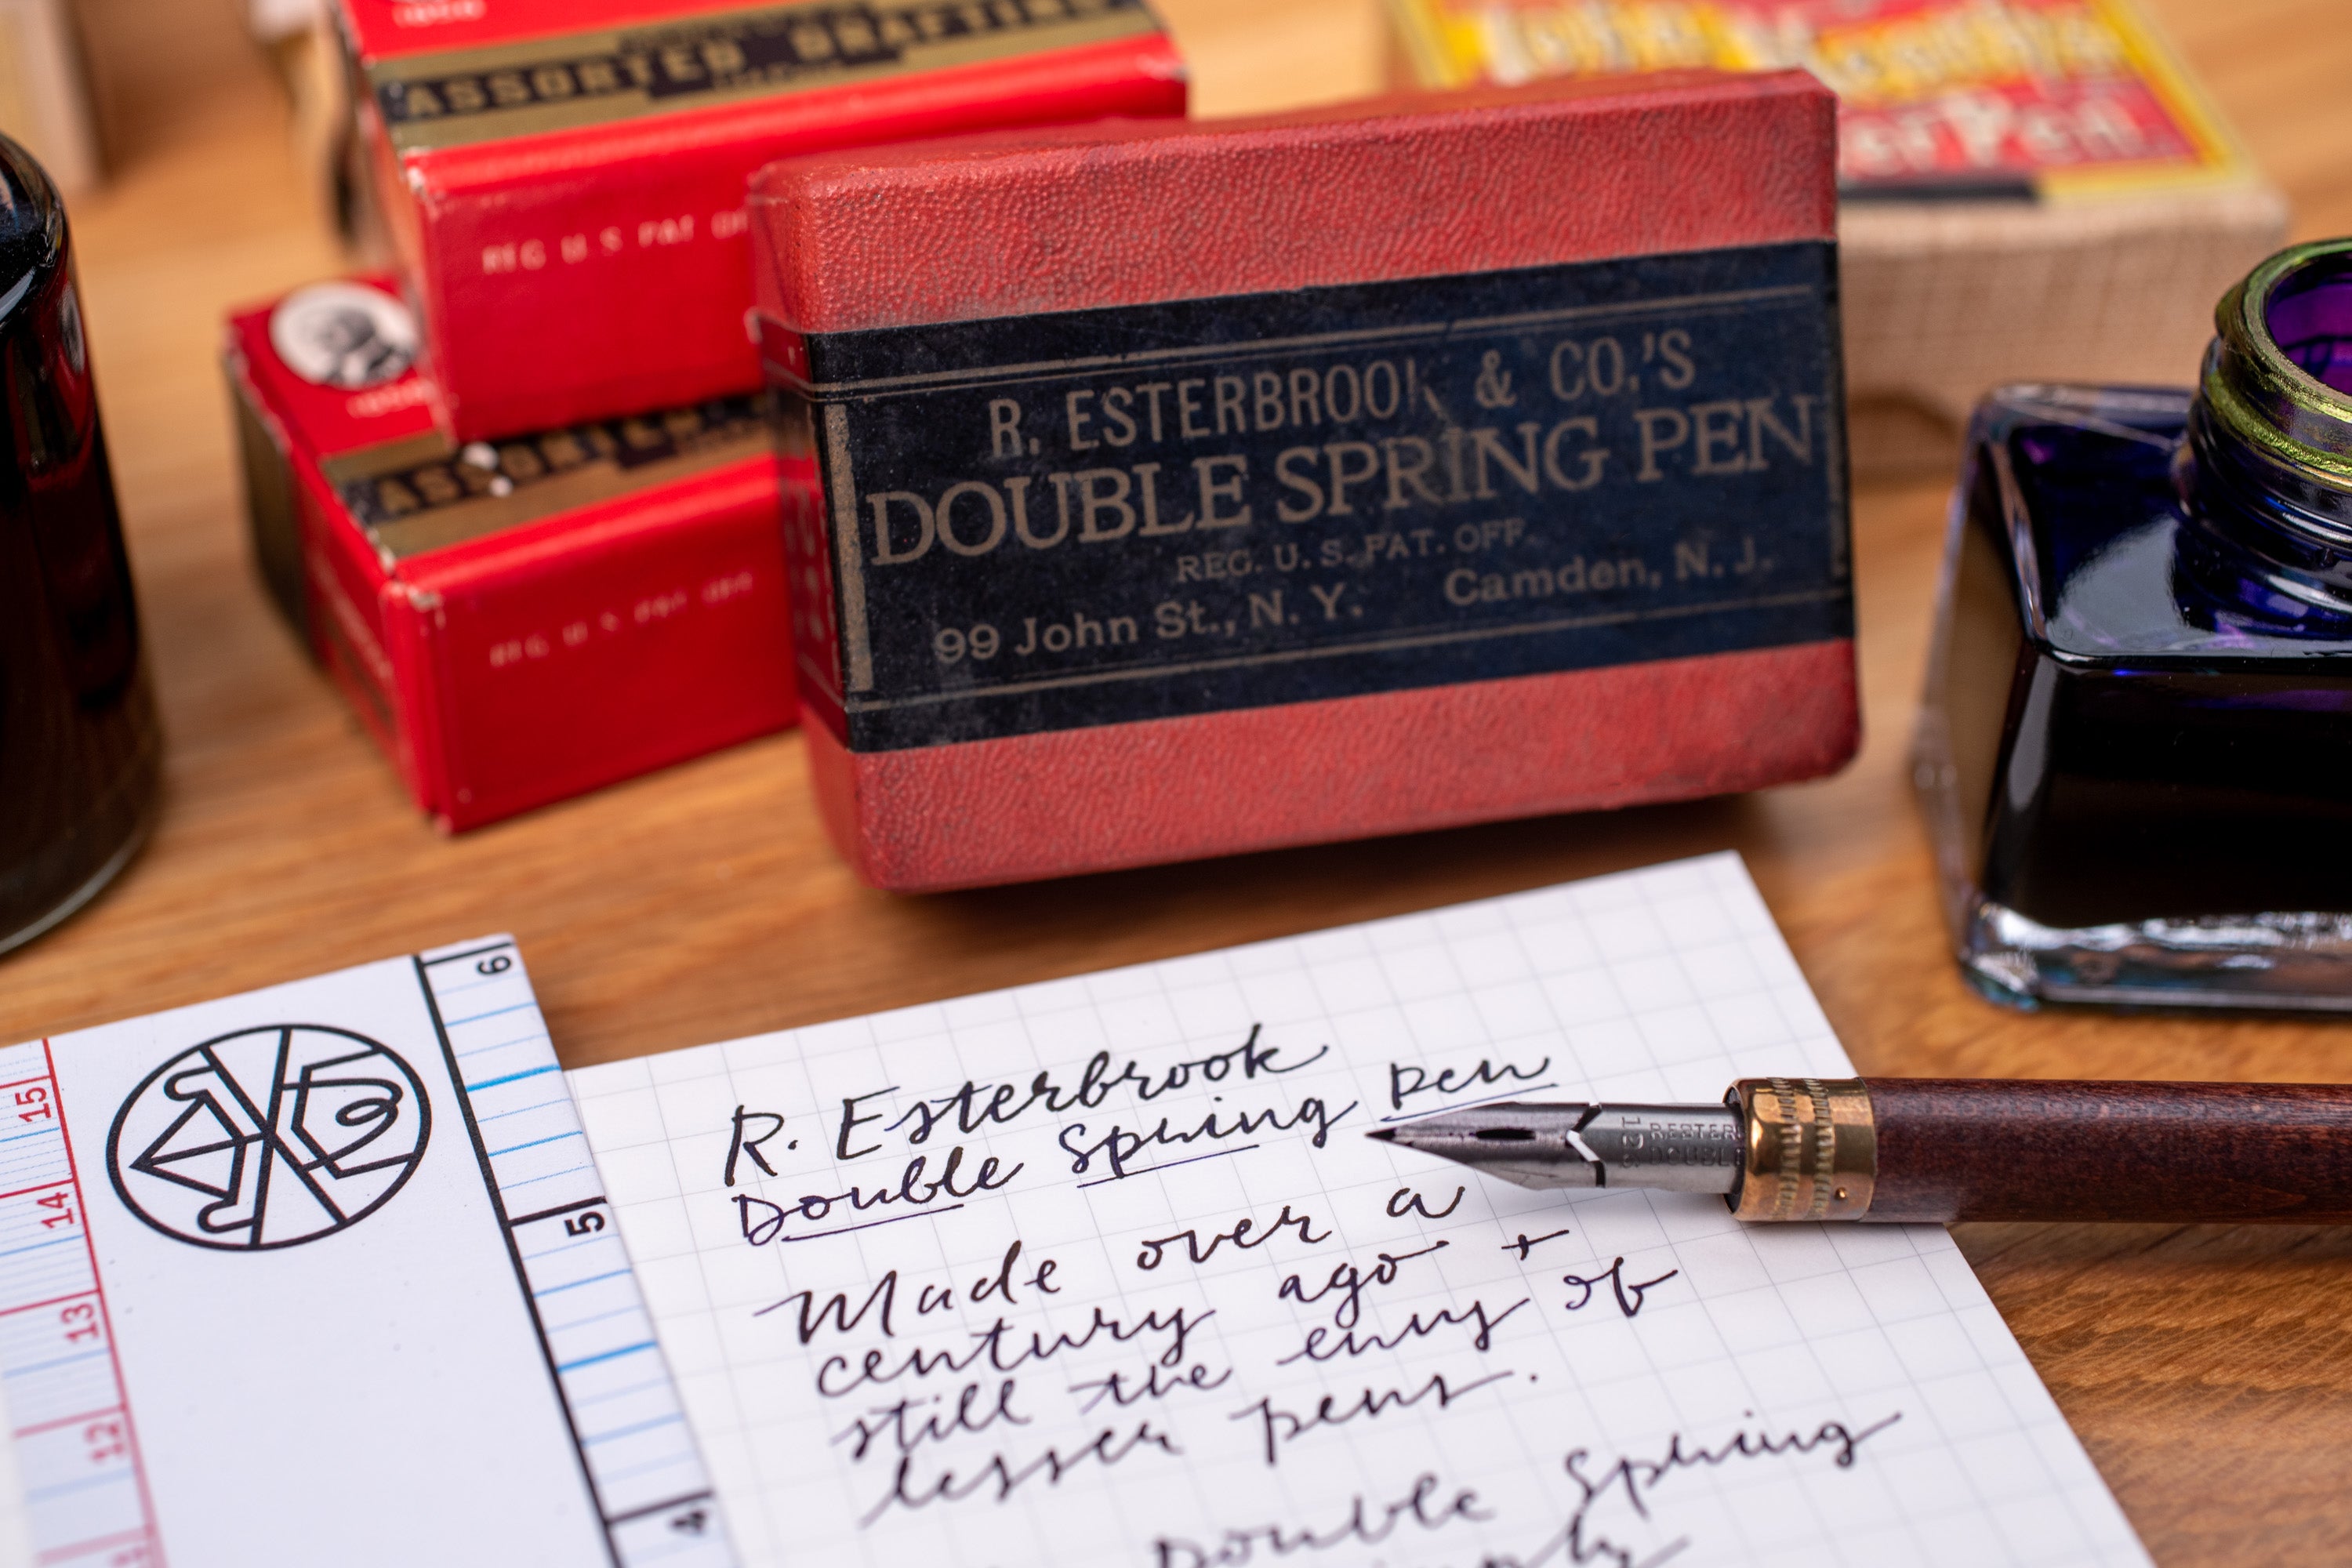 ASSORTED DRAFTING
REG U.S PAT OFF
ASSORTED
REG U.S PAT OFF
R. ESTERBROOK & CO.'S
DOUBLE SPRING PEN
REG. U. S. PAT. OFF.
99 John St., N. Y. Camden, N. J.
6
5
4
15
14
13
12
R. Esterbrook
Double Spring pen
Made over a
century ago +
still the envy of
lesser pens.
Double Spring